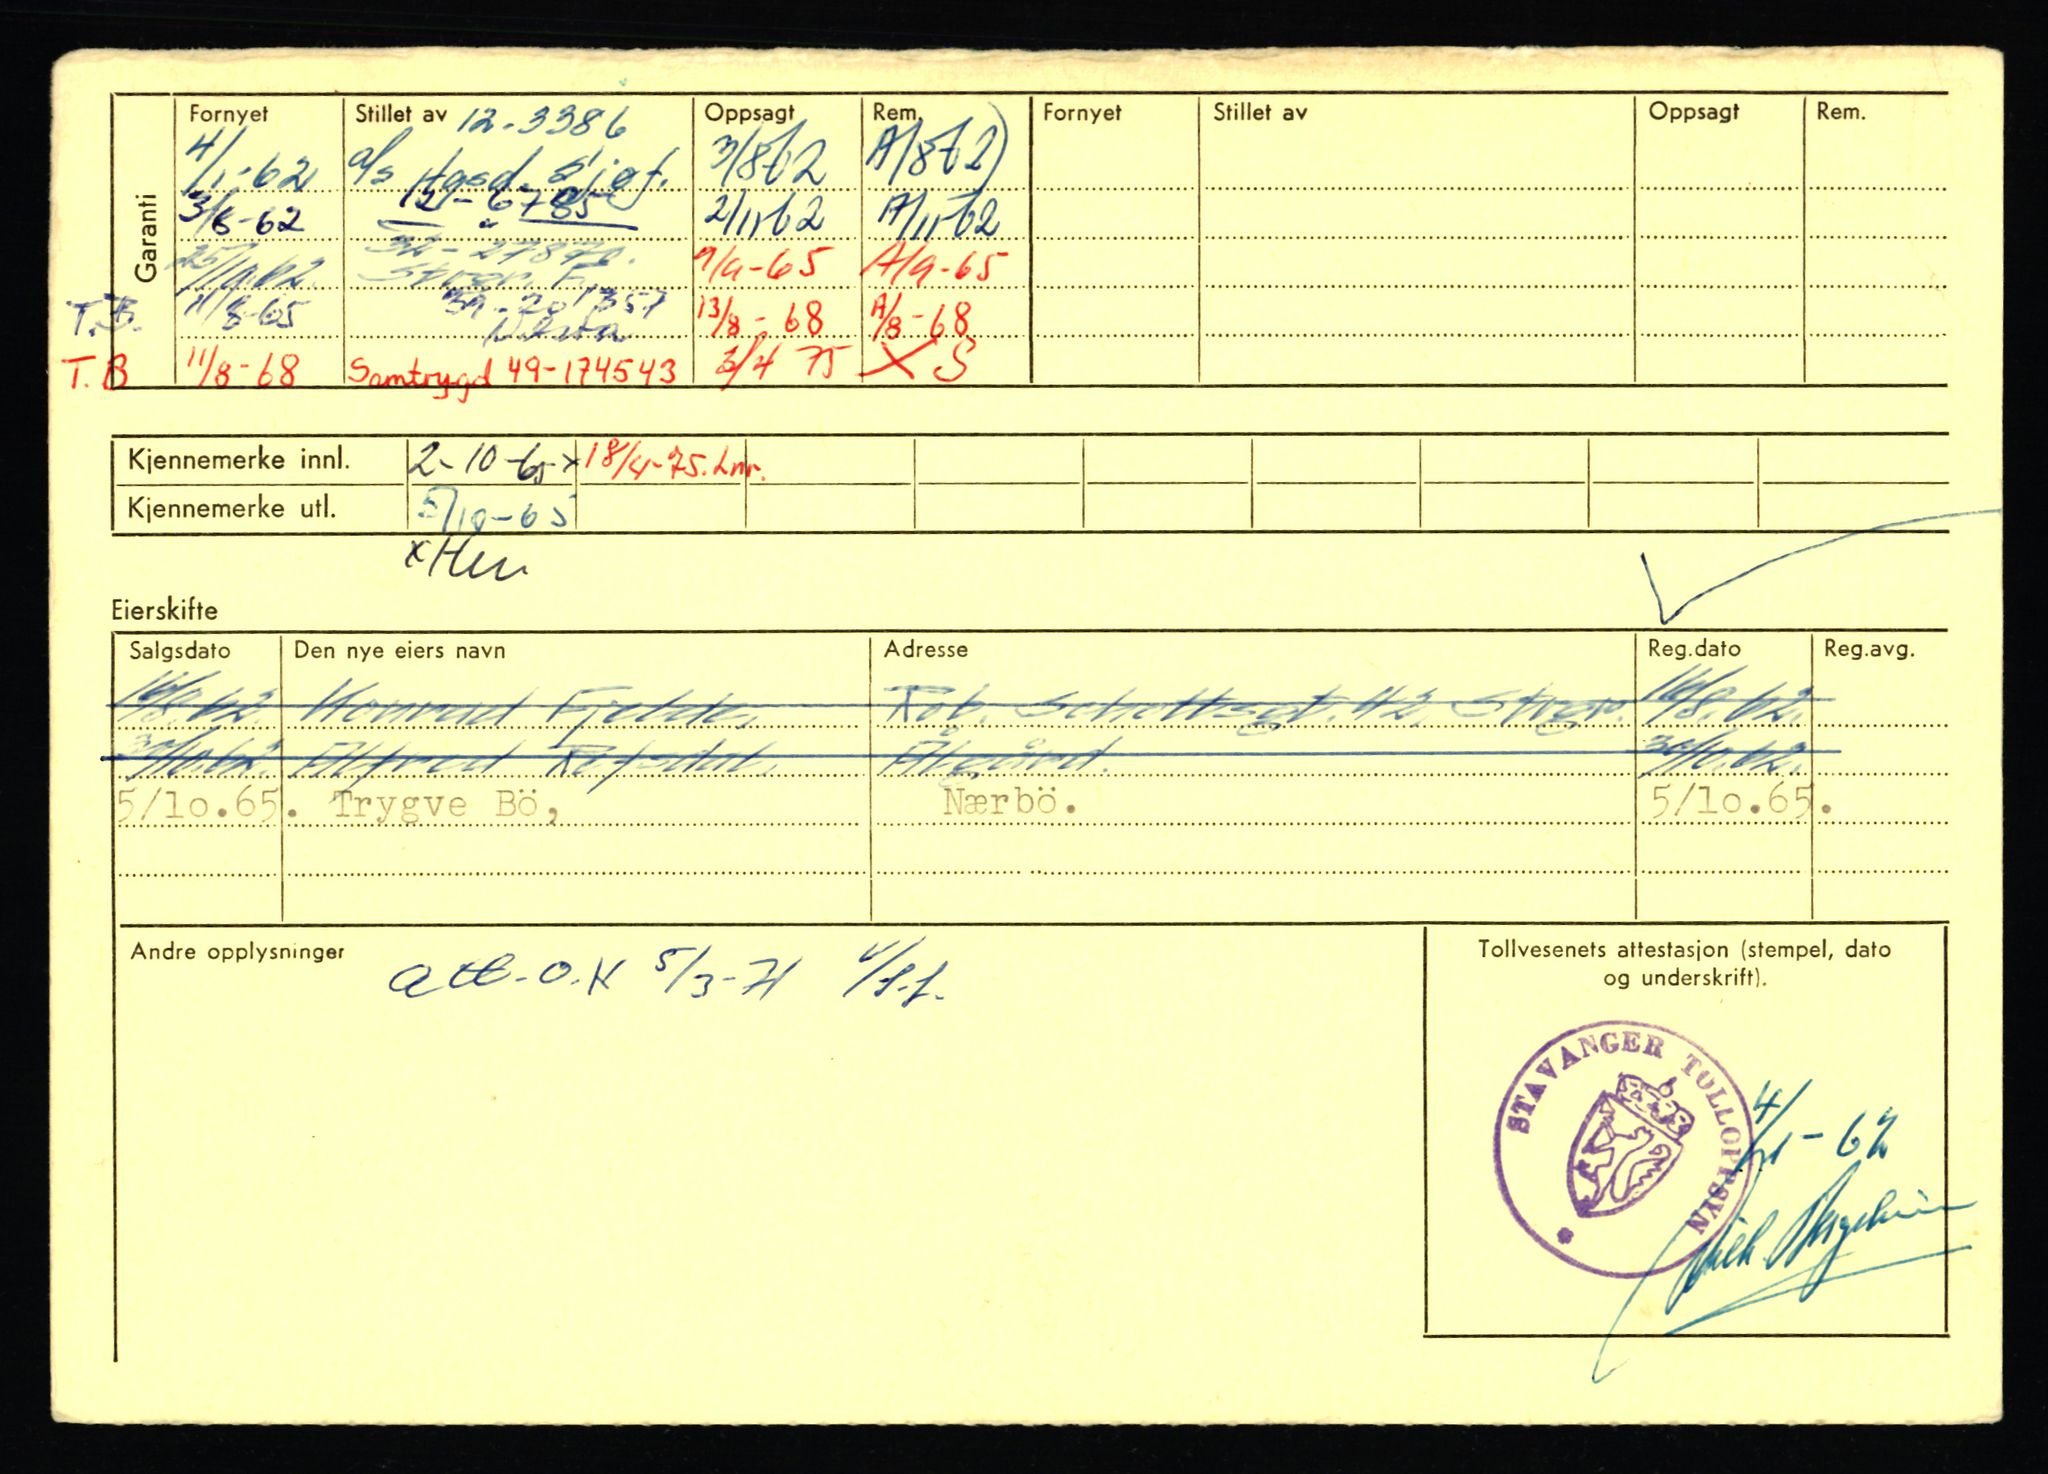 Garanti
Fornyet Stillet av Oppsagt Rem. Fornyet Stillet av Oppsagt Rem.
12-3386
4/1-62 a/s 3/8 62 A/8 62)
3/8-62 12-6785 2/11-62 A/11-62
25/10.62. 32-27870. 9/9-65 A/9-65
T.B. 11/8-65 39-201357 13/8-68 A/8-68
T.B 11/8-68 Samtrygd 49-174543 3/4 75 X S
Kjennemerke innl. 2-10-65 x 18/4-75. Lnr.
Kjennemerke utl. 5/10-65
Eierskifte
Salgsdato Den nye eiers navn Adresse Reg.dato Reg.avg.
16/8.62. Konrad Fjelde, Rob. Schottsgt. 42, Stvgr. 16/8.62.
30/10.62. Alfred Refsdal, Ålgård. 30/10.62.
5/lo.65. Trygve Bö, Nærbö. 5/lo.65.
Andre opplysninger
att. O.K 5/3-71
Tollvesenets attestasjon (stempel, dato
og underskrift).
STAVANGER TOLLOPPSYN
4/1-62